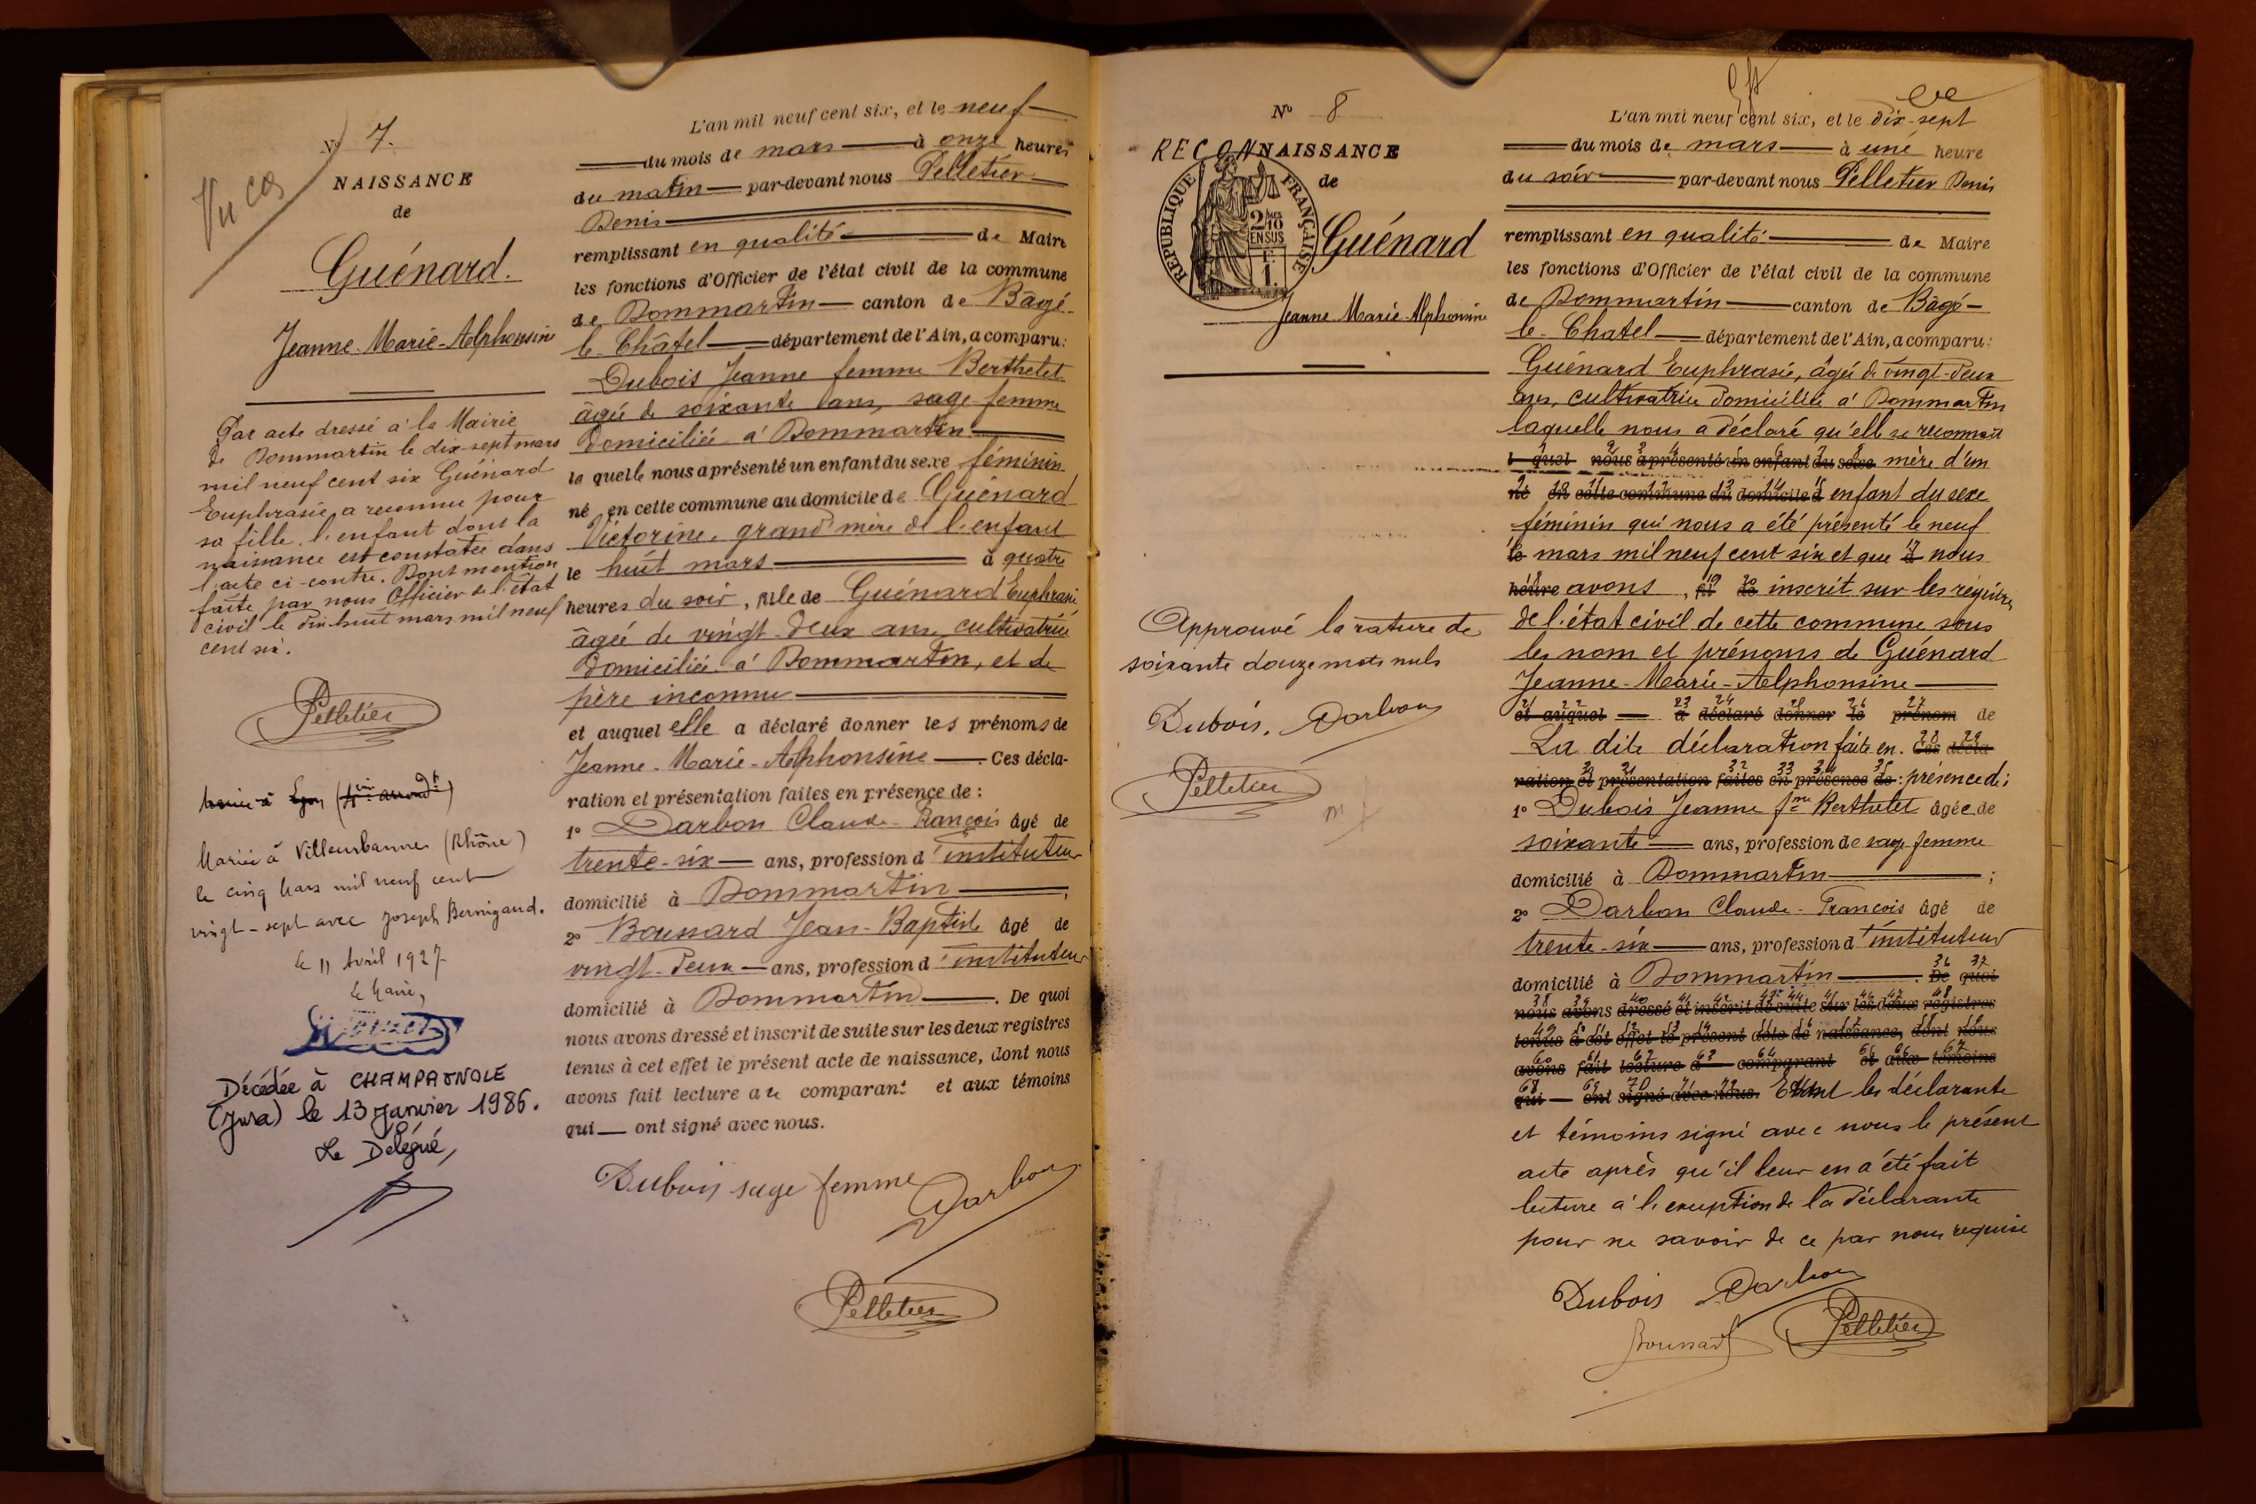 N° 7.
Vu
NAISSANCE
de
Guénard.
Jeanne-Marie-Alphonsine
Par acte dressé à la Mairie
de Dommartin le dix-sept mars
mil neuf cent six Guénard
Euphrasie a reconnu pour
sa fille l'enfant dont la
naissance est constatée dans
l'acte ci-contre. Dont mention
faite par nous Officier de l'état
civil le dix-huit mars mil neuf
cent six.
Pelletier
Mariée à Lyon (4ème arrondt)
Mariée à Villeurbanne (Rhône)
le cinq Mars mil neuf cent
vingt-sept avec Joseph Bernigaud.
le 11 Avril 1927
le Maire,
Décédée à CHAMPAGNOLE
(Jura) le 13 janvier 1986.
Le Délégué,
L'an mil neuf cent six, et le neuf
du mois de mars à onze heures
du matin par-devant nous Pelletier
Denis
remplissant en qualité de Maire
les fonctions d'Officier de l'état civil de la commune
de Dommartin canton de Bâgé-
le-Châtel département de l'Ain, a comparu:
Dubois Jeanne femme Berthelet
âgée de soixante ans, sage femme
domiciliée à Dommartin
laquelle nous a présenté un enfant du sexe féminin
né en cette commune au domicile de Guénard
Victorine, grand'mère de l'enfant
le huit mars à quatre
heures du soir, fille de Guénard Euphrasie
âgée de vingt-deux ans cultivatrice
domiciliée à Dommartin, et de
père inconnu
et auquel elle a déclaré donner les prénoms de
Jeanne-Marie-Alphonsine. Ces décla-
ration et présentation faites en présence de :
1° Darbon Claude-François âgé de
trente-six ans, profession d'instituteur
domicilié à Dommartin ;
2° Boussard Jean-Baptiste âgé de
vingt-deux ans, profession d'instituteur
domicilié à Dommartin. De quoi
nous avons dressé et inscrit de suite sur les deux registres
tenus à cet effet le présent acte de naissance, dont nous
avons fait lecture au comparant et aux témoins
qui ont signé avec nous.
Dubois sage femme Darbon
Pelletier
N° 8
RECONNAISSANCE
de
RÉPUBLIQUE FRANÇAISE
2/10
EN SUS
1
Guénard
Jeanne-Marie-Alphonsine
Approuvé la rature de
soixante douze mots nuls
Dubois. Darbon
Pelletier
L'an mil neuf cent six, et le dix-sept
du mois de mars à une heure
du soir par-devant nous Pelletier Denis
remplissant en qualité de Maire
les fonctions d'Officier de l'état civil de la commune
de Dommartin canton de Bâgé-
le-Chatel département de l'Ain, a comparu:
Guénard Euphrasie, âgée de vingt-deux
ans, cultivatrice domiciliée à Dommartin
laquelle nous a déclaré qu'elle se reconnait
1 quel 2 nous 3 a présenté 4 un enfant du sexe mère d'un
né en cette commune au domicile d enfant du sexe
féminin qui nous a été présenté le neuf
le mars mil neuf cent six et que à nous
heure avons , fil de inscrit sur les registres
de l'état civil de cette commune sous
les nom et prénoms de Guénard
Jeanne-Marie-Alphonsine
et auquel a déclaré donner le prénom de
La dite déclaration faite en. Ces décla-
ration et présentation faites en présence de : présence de;
1° Dubois Jeanne fme Berthelet âgée de
soixante ans, profession de sage femme
domicilié à Dommartin ;
2° Darbon Claude-François âgé de
trente-six ans, profession d'instituteur
domicilié à Dommartin. De quoi
nous avons dressé et inscrit de suite sur les deux registres
tenus à cet effet le présent acte de naissance, dont nous
avons fait lecture a comparant et aux témoins
qui ont signé avec nous. Et ont les déclarante
et témoins signé avec nous le présent
acte après qu'il leur en a été fait
lecture à l'exception de la déclarante
pour ne savoir de ce par nous requise
Dubois Darbon
Boussard Pelletier